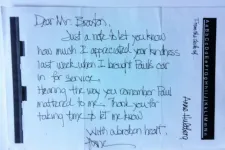 Dear Mr. Beaton,
Just a note to let you know
how much I appreciated your kindness
last week when I brought Paul's car
in for service.
Hearing the way you remember Paul
mattered to me. Thank you for
taking time to let me know
With a broken heart,
From the desk of